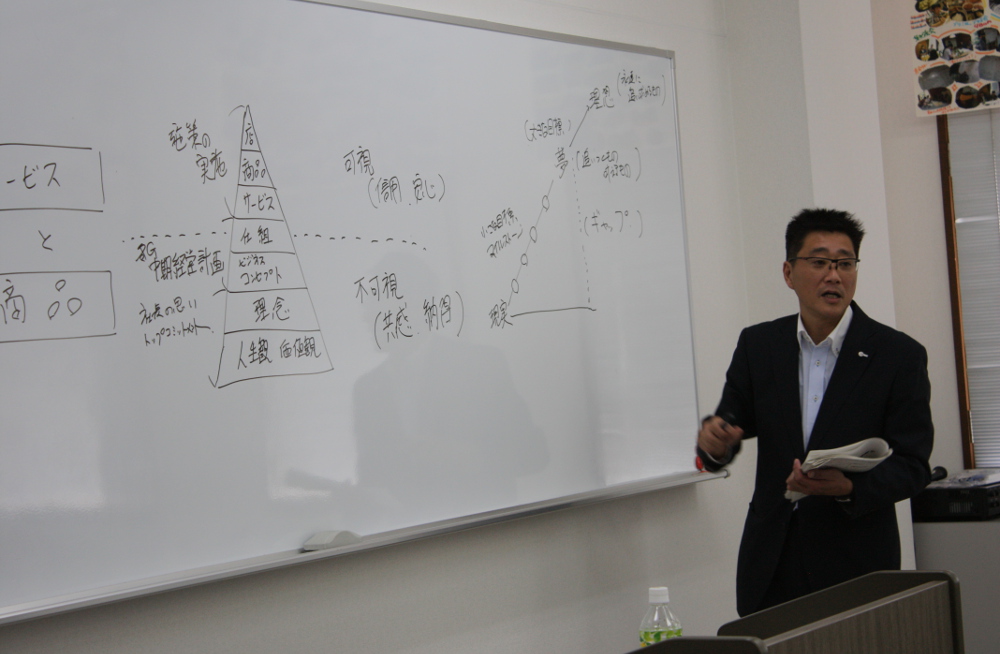 ービス
と
商品
施策の
実施
店
商品
サービス
仕組
ビジネス
コンセプト
理念
人生観 価値観
中期経営計画
社長の思い
トップコミットメント
可視
(信用、安心)
不可視
(共感、納得)
理念
(永遠に
追い求めるもの)
(大きな目標)
夢
(ギャップ)
小さな目標
マイルストーン
現実